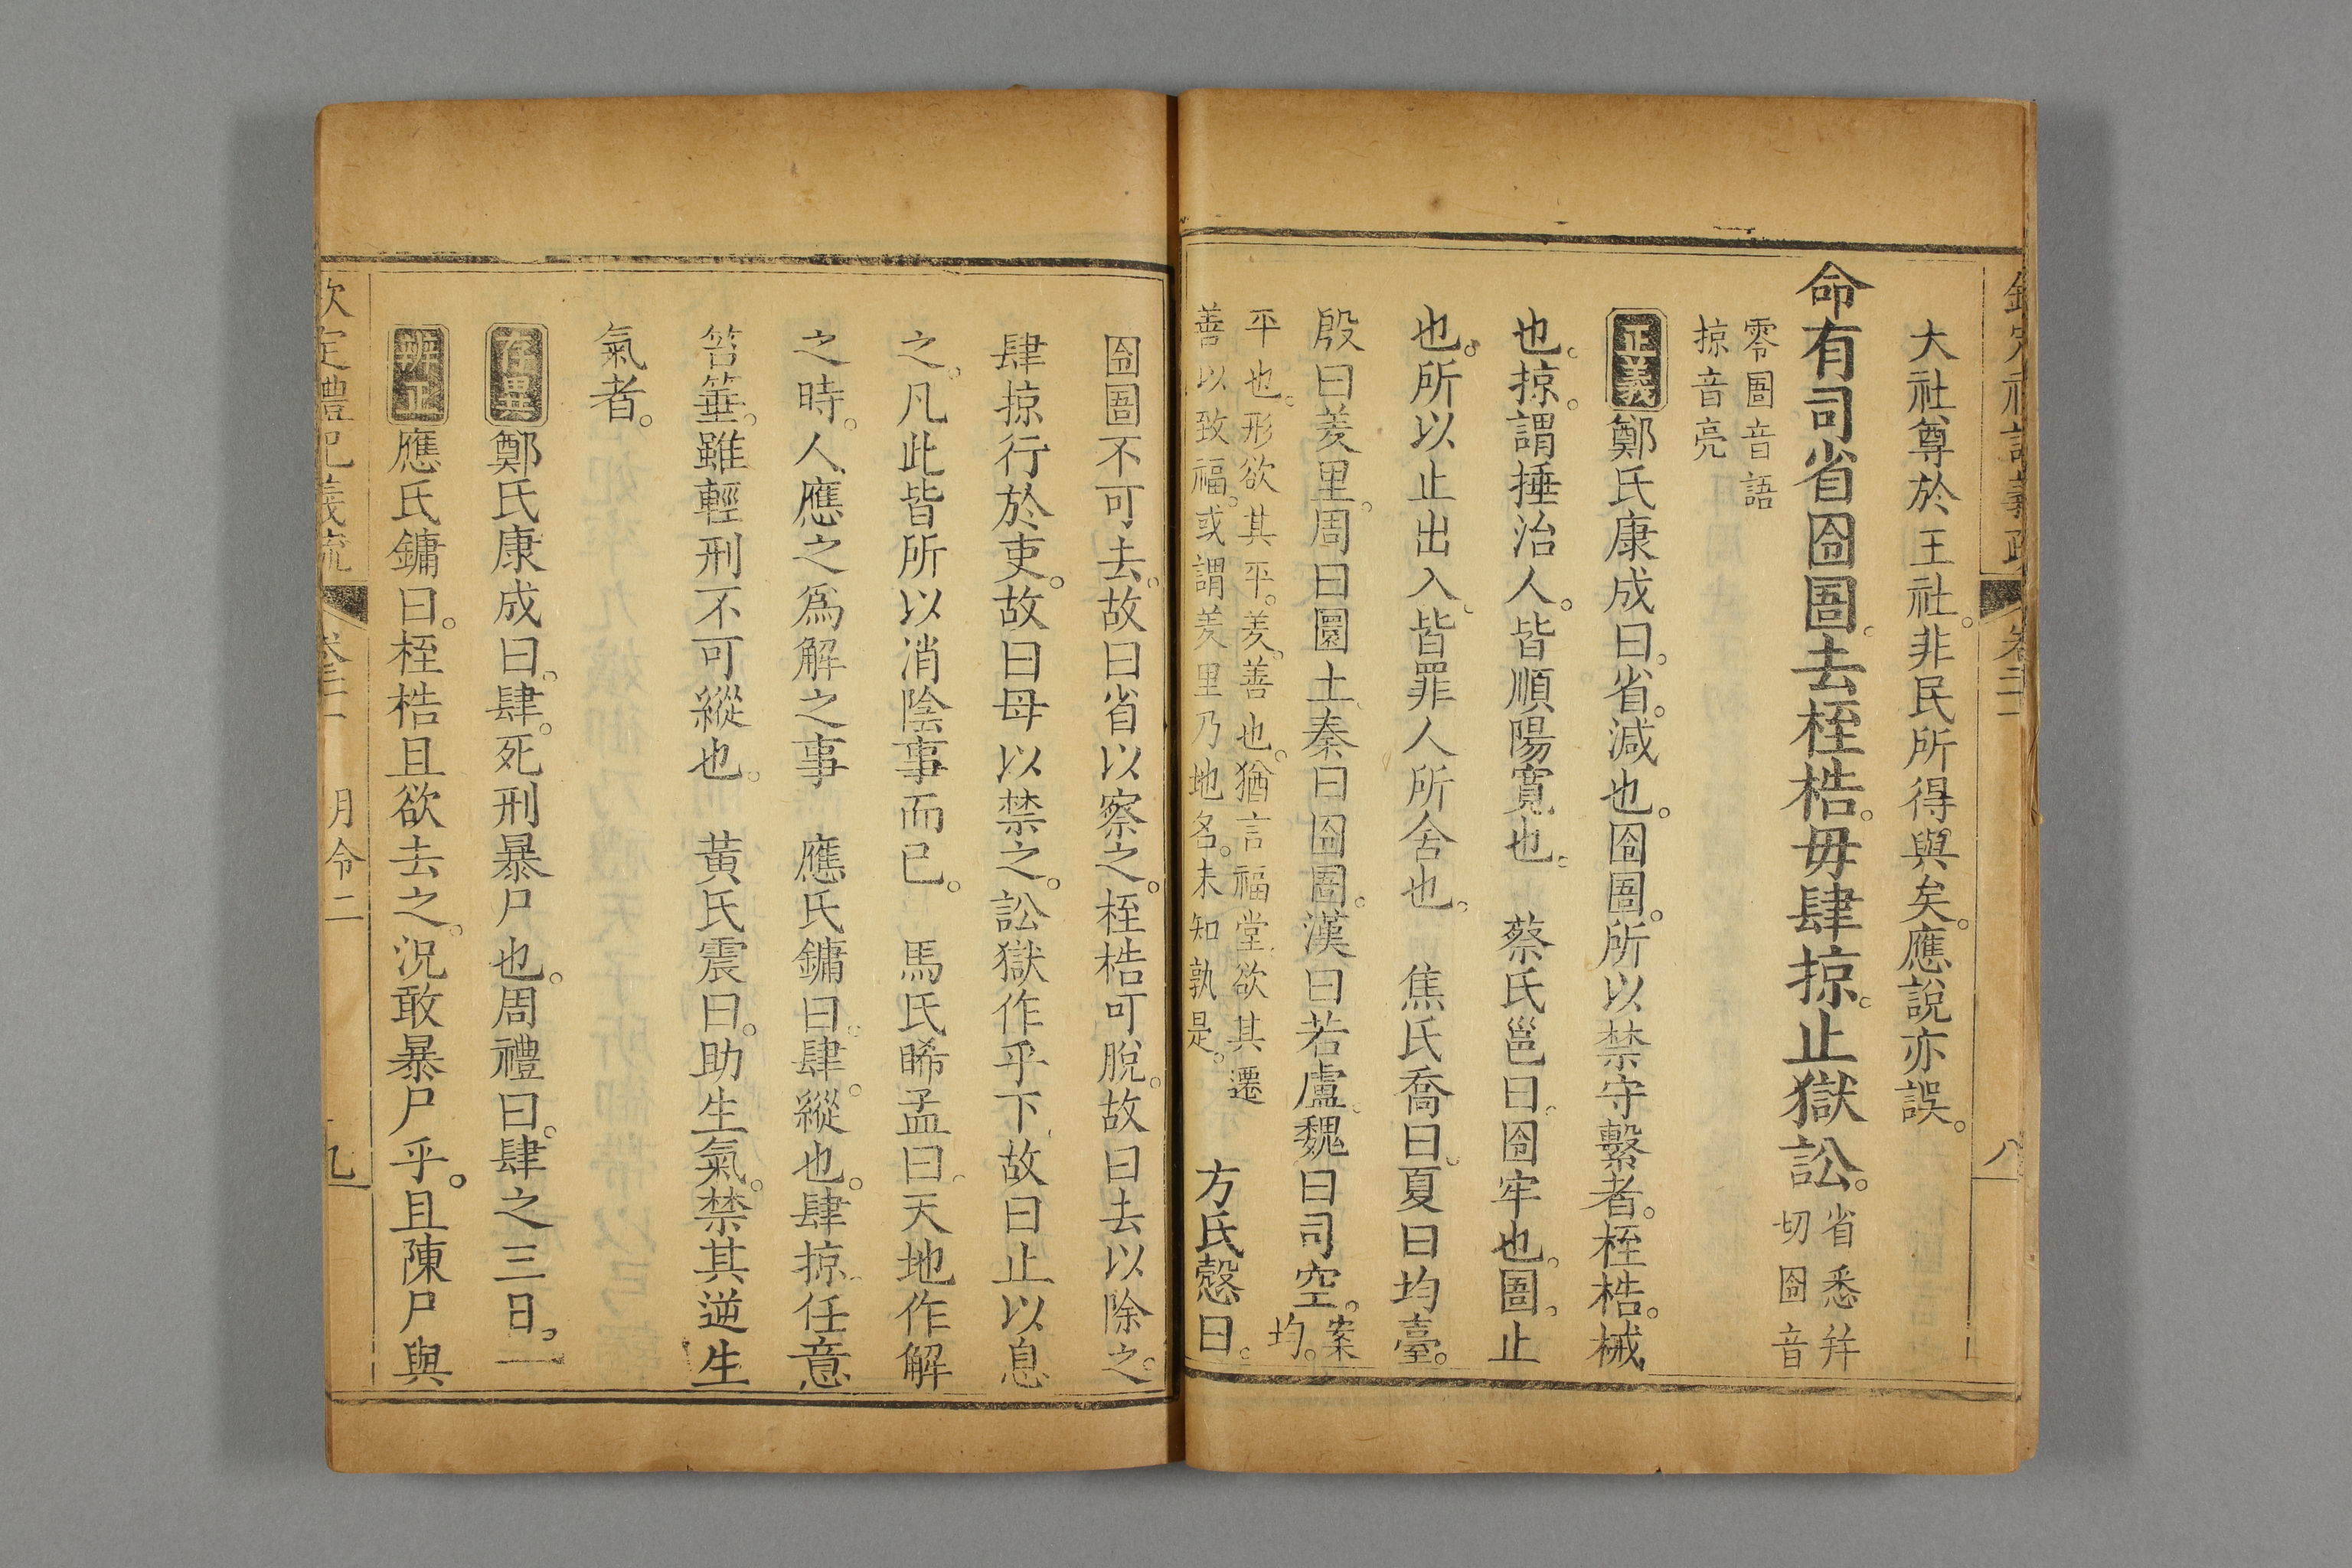 大社尊於王社。非民所得與矣。應說亦誤。
命有司省囹圄。去桎梏。毋肆掠。止獄訟。省悉幷
切囹音
零圄音語
掠音亮
正義鄭氏康成曰。省。減也。囹圄。所以禁守繫者。桎梏。械
也。掠。謂捶治人。皆順陽寬也。　蔡氏邕曰。囹牢也。圄。止
也。所以止出入。皆罪人所舍也。　焦氏喬曰。夏曰均臺。
殷曰羑里。周曰圜土。秦曰囹圄。漢曰若盧。魏曰司空。案
均。
平也。形欲其平。羑。善也。猶言福堂。欲其遷
善以致福。或謂羑里乃地名。未知孰是。　方氏慤曰。
囹圄不可去。故曰省以察之。桎梏可脫。故曰去以除之。
肆掠行於吏。故曰毋以禁之。訟獄作乎下。故曰止以息
之。凡此皆所以消陰事而已。　馬氏睎孟曰。天地作解
之時。人應之爲解之事　應氏鏞曰。肆。縱也。肆掠。任意
笞箠。雖輕刑不可縱也。　黃氏震曰。助生氣。禁其逆生
氣者。
存異鄭氏康成曰。肆。死刑暴尸也。周禮曰。肆之三日。
辨正應氏鏞曰。桎梏且欲去之。況敢暴尸乎。且陳尸與
欽定禮記義疏　卷二十一　月令二　九
八